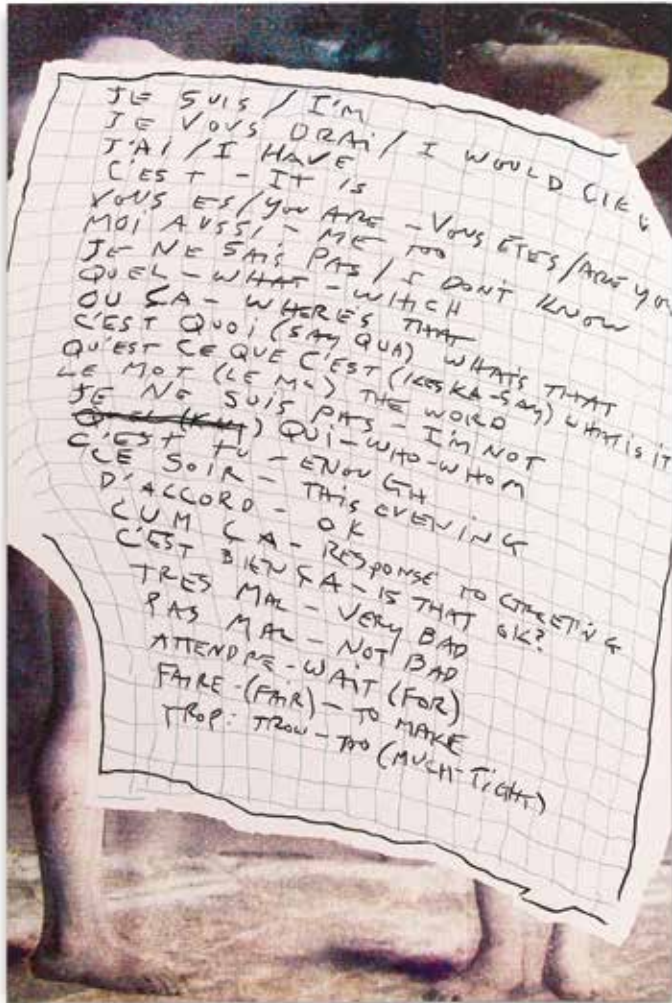 JE SUIS / I'M
JE VOUS DRAI / I WOULD LIKE
J'AI / I HAVE
C'EST - IT IS
VOUS ES / YOU ARE - VOUS ÊTES / ARE YOU
MOI AUSSI - ME TOO
JE NE SAIS PAS / I DONT KNOW
QUEL - WHAT - WHICH
OU ÇA - WHERES THAT
C'EST QUOI (SAY QUA) WHATS THAT
QU'EST CE QUE C'EST (KESKA-SAY) WHAT IS IT
LE MOT (LE MO) THE WORD
JE NE SUIS PAS - I'M NOT
QUI - WHO - WHOM
C'EST TU - ENOUGH
CE SOIR - THIS EVENING
D'ACCORD - OK
CUM ÇA - RESPONSE TO GREETING
C'EST BIEN ÇA - IS THAT OK?
TRES MAL - VERY BAD
PAS MAL - NOT BAD
ATTENDRE - WAIT (FOR)
FAIRE - (FAIR) - TO MAKE
TROP: TROW - TOO (MUCH - TIGHT)